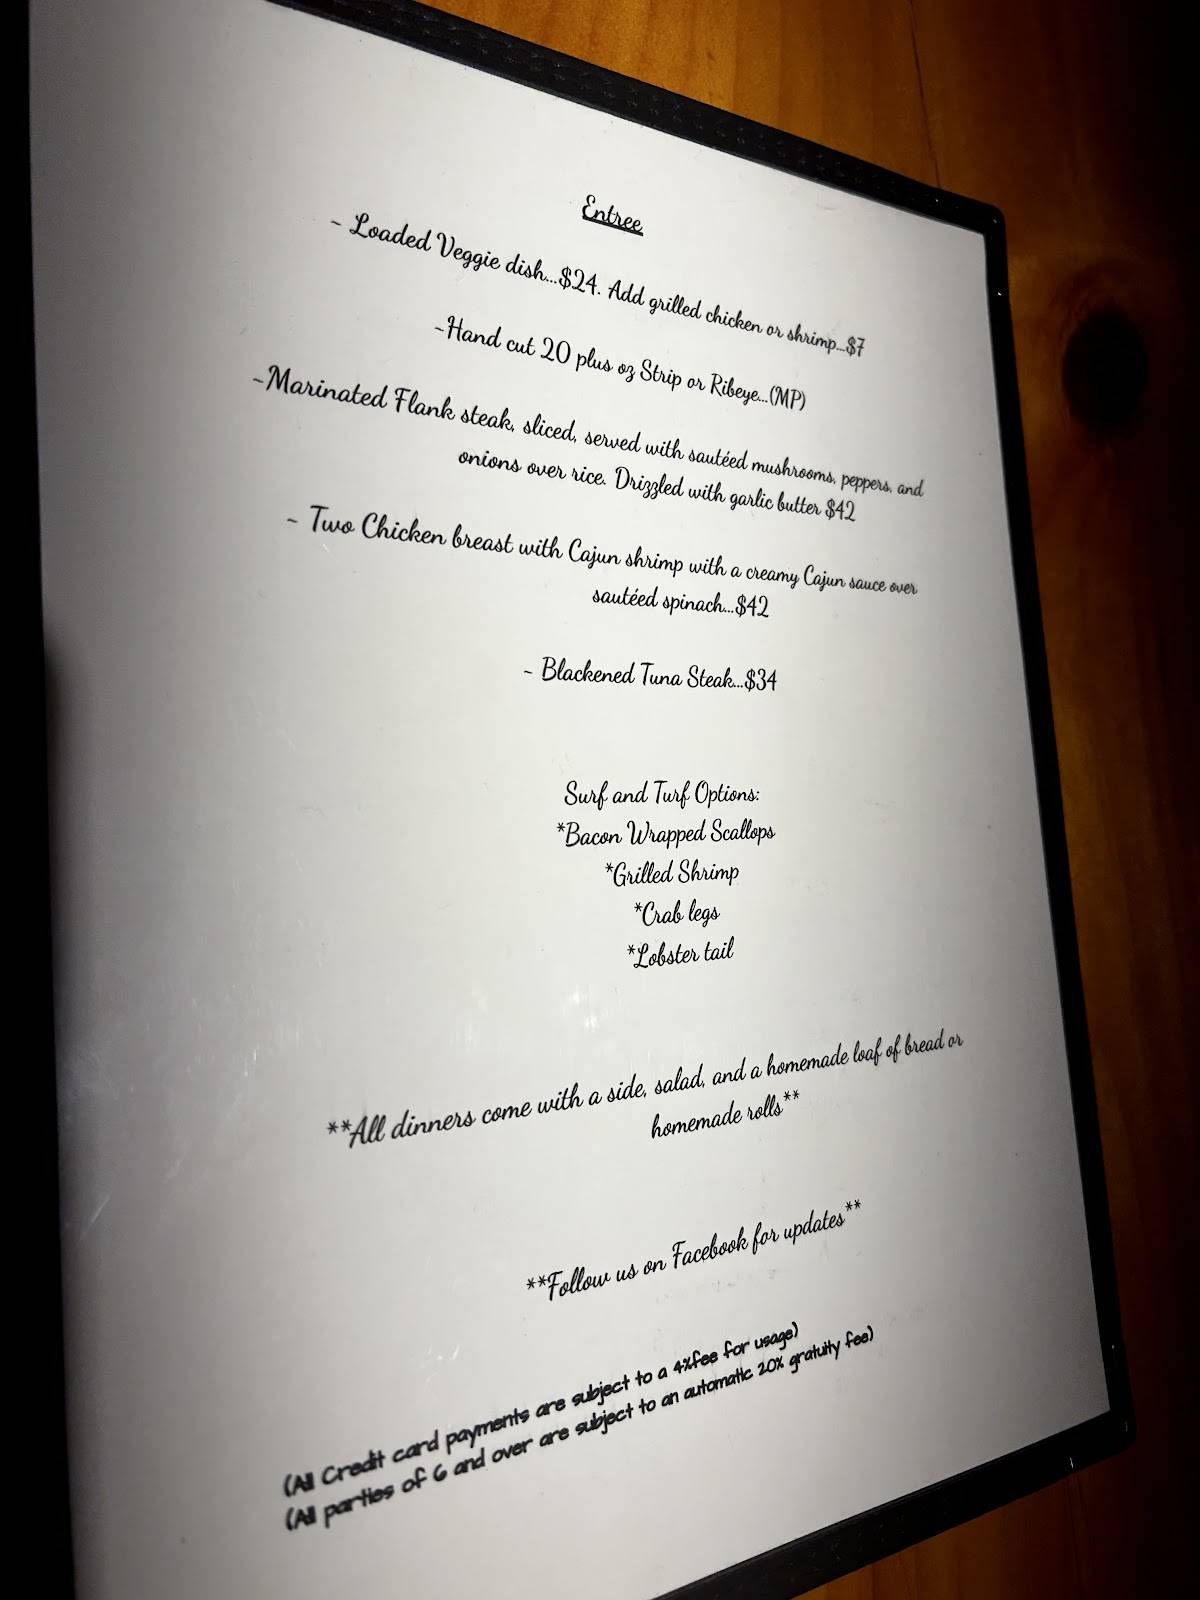 Entree
~ Loaded Veggie dish...$24. Add grilled chicken or shrimp...$7
~Hand cut 20 plus oz Strip or Ribeye...(MP)
~Marinated Flank steak, sliced, served with sautéed mushrooms, peppers, and
onions over rice. Drizzled with garlic butter $42
~ Two Chicken breast with Cajun shrimp with a creamy Cajun sauce over
sautéed spinach...$42
~ Blackened Tuna Steak...$34
Surf and Turf Options:
*Bacon Wrapped Scallops
*Grilled Shrimp
*Crab legs
*Lobster tail
**All dinners come with a side, salad, and a homemade loaf of bread or
homemade rolls**
**Follow us on Facebook for updates**
(All Credit card payments are subject to a 4%fee for usage)
(All parties of 6 and over are subject to an automatic 20% gratuity fee)